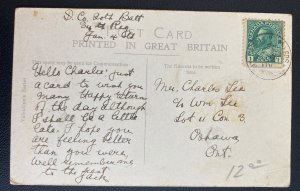 D. Co 20th Batt
Jan 4
POST CARD
PRINTED IN GREAT BRITAIN
This space may be used for Communication
The Address to be written here
Hello Charles just
a card to wish you
many Happy returns
of the day although
I shall be a little
late. I hope you
are feeling better
than you were
well remember me
to the rest
Jack
Mr. Charles Lea
Wm Lee
Lot 11 Con 3
Oshawa
Ont.
12